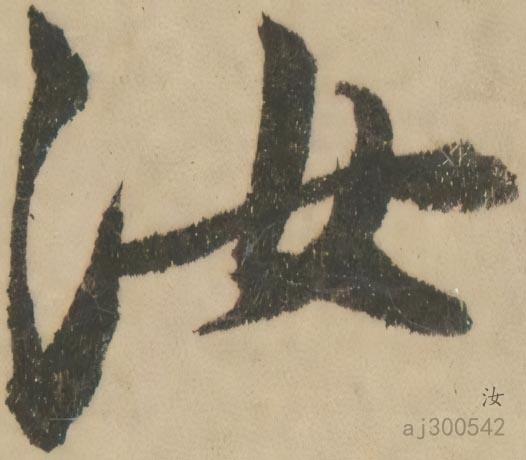 汝
汝
aj300542